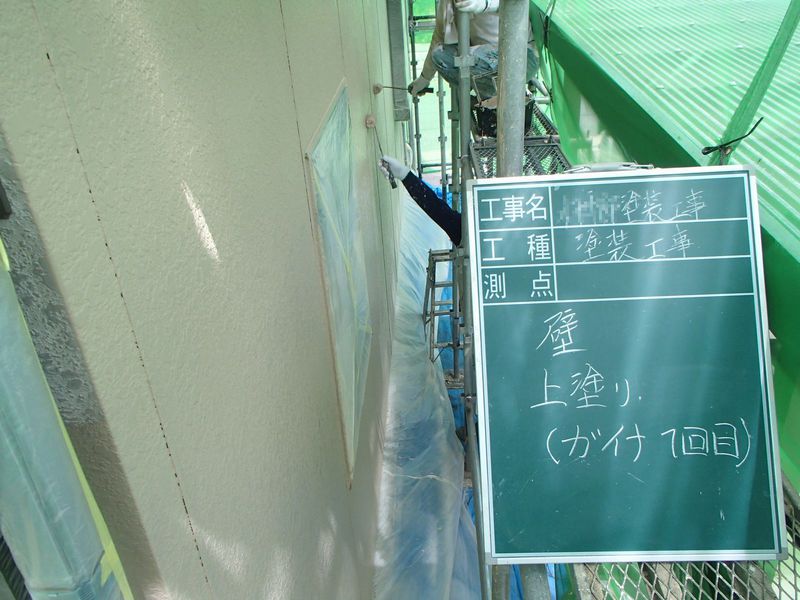 工事名 塗装工事
工種 塗装工事
測点
壁
上塗り
(ガイナ 1回目)